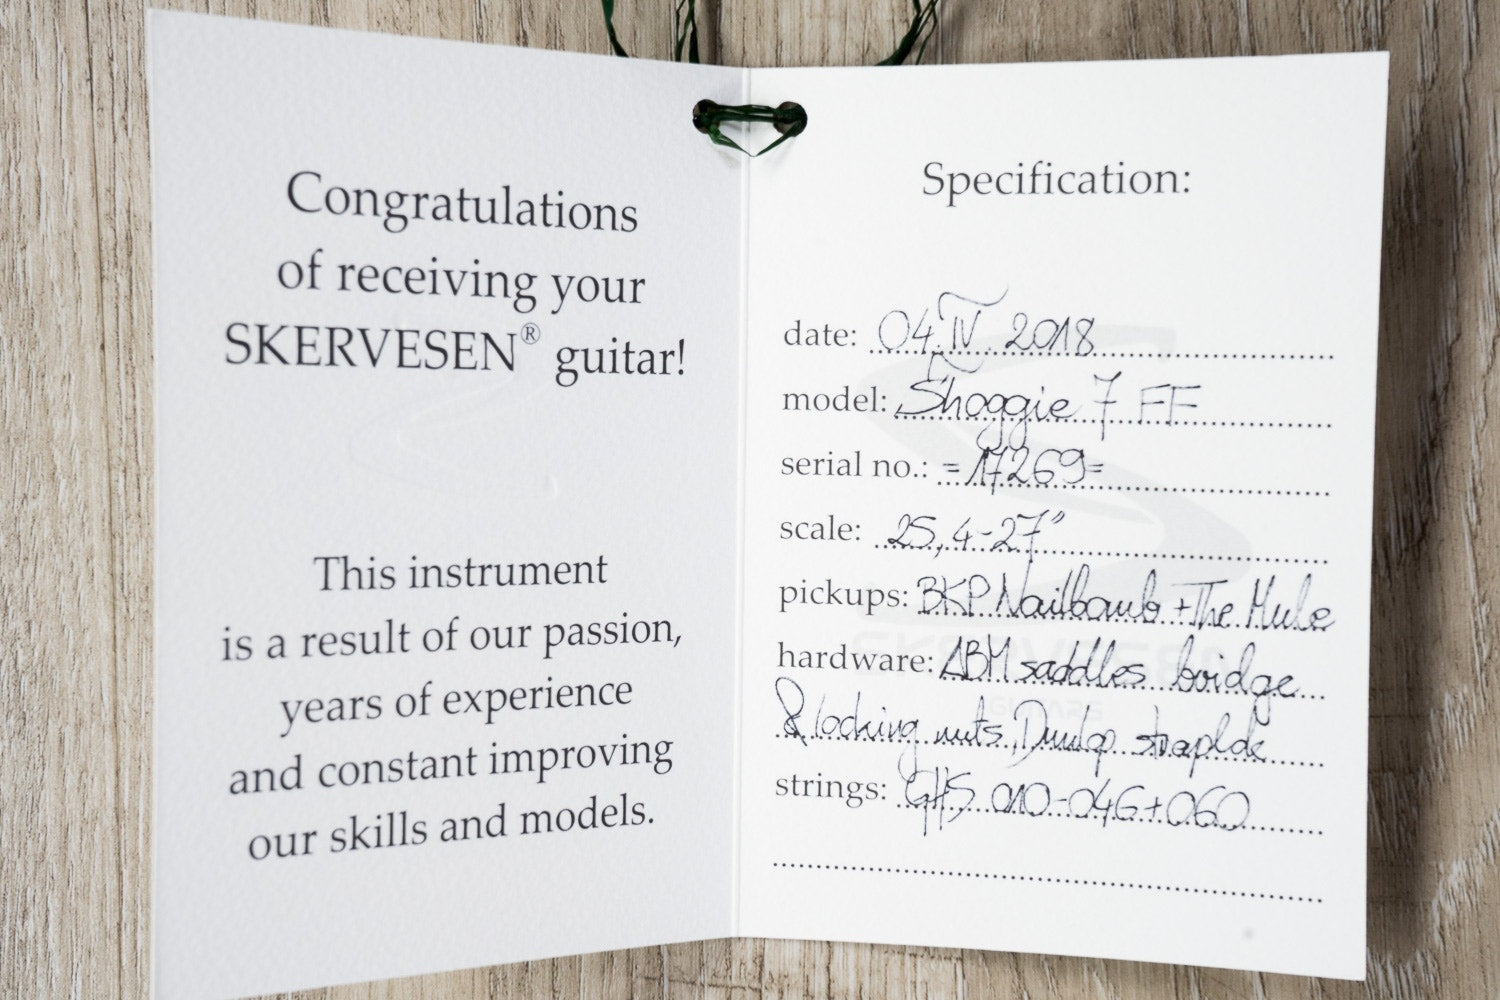 Congratulations
of receiving your
SKERVESEN® guitar!
This instrument
is a result of our passion,
years of experience
and constant improving
our skills and models.
Specification:
date: 04.IV.2018
model: Shoggie 7 FF
serial no.: =17269=
scale: 25,4-27"
pickups: BKP Nailbomb + The Mule
hardware: ABM saddles bridge
& locking nuts, Dunlop straplok
strings: GHS 010-046+060
SKERVESEN
GUITARS